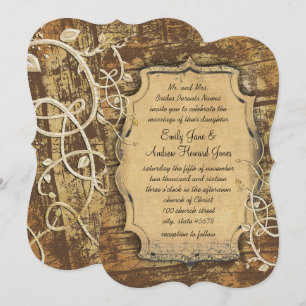 Mr. and Mrs.
Brides Parents Names
invite you to celebrate the
marriage of their daughter
Emily Jane &
Andrew Howard Jones
saturday the fifth of november
two thousand and sixteen
three o'clock in the afternoon
church of Christ
100 church street
city, state 45678
reception to follow